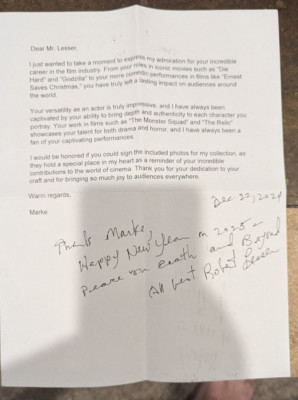 Dear Mr. Lesser,
I just wanted to take a moment to express my admiration for your incredible
career in the film industry. From your roles in iconic movies such as "Die
Hard" and "Godzilla" to your more comedic performances in films like "Ernest
Saves Christmas," you have truly left a lasting impact on audiences around
the world.
Your versatility as an actor is truly impressive, and I have always been
captivated by your ability to bring depth and authenticity to each character you
portray. Your work in films such as "The Monster Squad" and "The Relic"
showcases your talent for both drama and horror, and I have always been a
fan of your captivating performances.
I would be honored if you could sign the included photos for my collection, as
they hold a special place in my heart as a reminder of your incredible
contributions to the world of cinema. Thank you for your dedication to your
craft and for bringing so much joy to audiences everywhere.
Warm regards,
Marke
Dec 22, 2024
Thanks Marke,
Happy New Year on 2025 –
Peace on Earth and Beyond
All best Robert Lesser